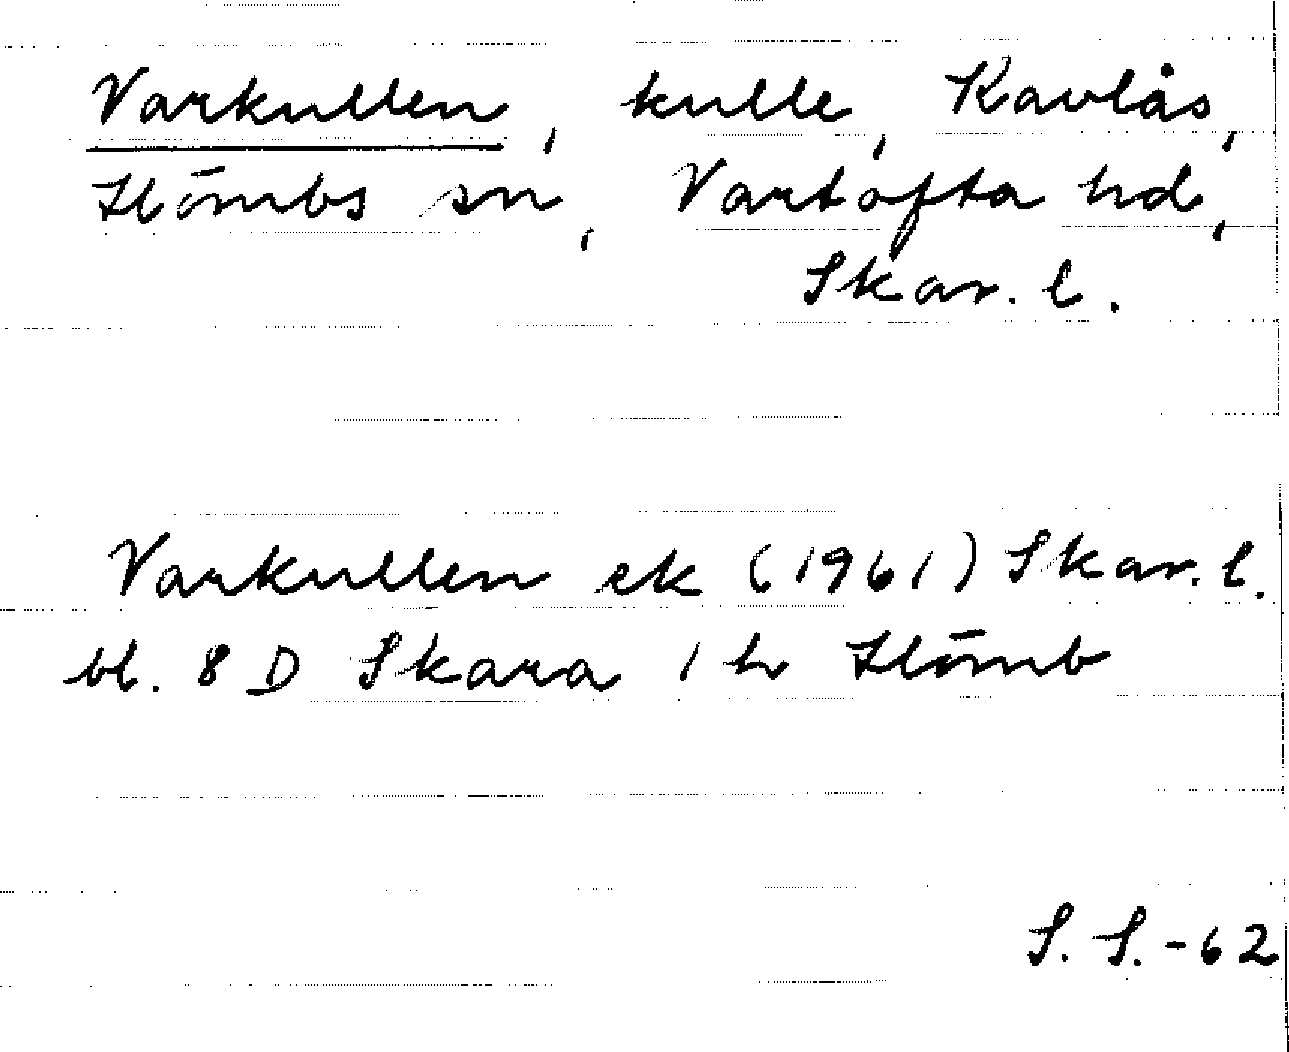 Varkullen, kulle, Kavlås,
Hömbs sn, Vartofta hd,
Skar. l.
Varkullen ek (1961) Skar. l.
bl. 8 D Skara 1 h Hömb
S. S. -62